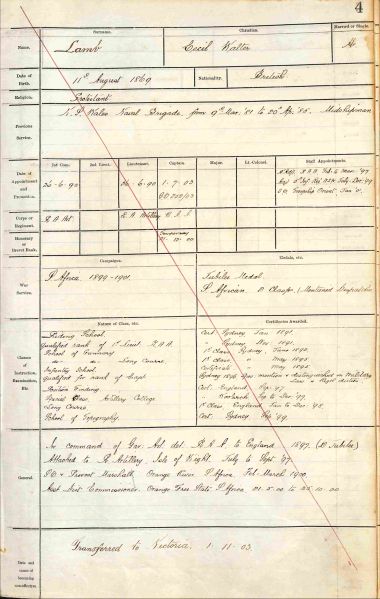 4
Surname. Christian. Married or Single.
Name. Lamb Cecil Walter M
Date of Birth. 11th August 1869 Nationality. British
Religion. Protestant
Previous Service. N.S. Wales Naval Brigade from 9th Mar. '81 to 20th Apr. '85. Midshipman
2nd Lieut. Lieutenant. Captain. Major. Lt.-Colonel. Staff Appointments.
Date of Appointment and Promotion. 26-6-90 26-6-90 1-7-03
Corps or Regiment. R.A. Art. R.A. Artillery R.A.A.
Honorary or Brevet Rank.
Campaigns. Medals, etc.
War Service. S. Africa 1899-1901. Jubilee Medal
S. African
Nature of Class, etc. Certificates Awarded.
Classes of Instruction, Examination, Etc.
Riding School. Cert. Sydney Jan 1891
Qualified rank of 1st Lieut. R.A.A. " Sydney Nov. 1891
School of Gunnery 1st Class Sydney, June 1892
do do Long Course 1st Class " May 1893
Infantry School. Certificate
Qualified for rank of Capt
Position Finding Cert. England Sep. '97
Special Class Artillery College " Woolwich Sep to Dec. '97
Long Course 1st Class England Jan to Dec. '98
School of Topography. Cert. Sydney '99
General.
In command of Gov. Art. det. R.N.A. to England 1897. (D. Jubilee)
Attached to R. Artillery Isle of Wight July to Sept. '97
S.O. & Provost Marshall Orange River S. Africa Feb. March 1900
Asst. Dist. Commissioner. Orange Free State S. Africa 01.5.00 to 25.10.00
Transferred to Victoria. 1-11-03.
Date and cause of becoming non-effective.